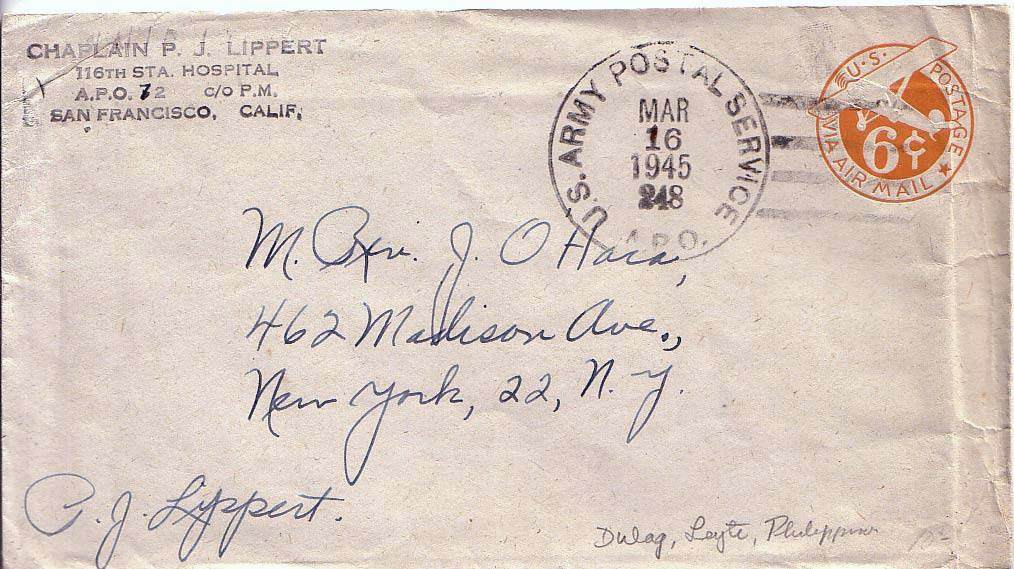 CHAPLAIN P. J. LIPPERT
116TH STA. HOSPITAL
A.P.O. 72 C/O P.M.
SAN FRANCISCO, CALIF.
U.S. ARMY POSTAL SERVICE
MAR
16
1945
248
A.P.O.
U.S. POSTAGE
6¢
VIA AIR MAIL
M. Rev. J. O'Hara,
462 Madison Ave.,
New York, 22, N.Y.
P. J. Lippert.
Dulag, Leyte, Philippines